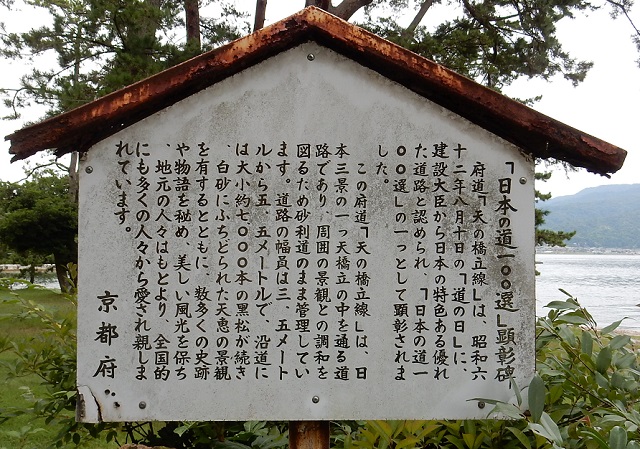 「日本の道一〇〇選」顕彰碑
府道「天の橋立線」は、昭和六
十二年八月十日の「道の日」に、
建設大臣から日本の特色ある優れ
た道路と認められ、「日本の道一
〇〇選」の一つとして顕彰されま
した。
この府道「天の橋立線」は、日
本三景の一つ天橋立の中を通る道
路であり、周囲の景観との調和を
図るため砂利道のまま管理してい
ます。道路の幅員は三、五メート
ルから五、五メートルで、沿道に
は大小約七〇〇〇本の黒松が続き
、白砂にふちどられた天恵の景観
を有するとともに、数多くの史跡
や物語を秘め、美しい風光を保ち
、地元の人々はもとより、全国的
にも多くの人々から愛され親しま
れています。
京都府